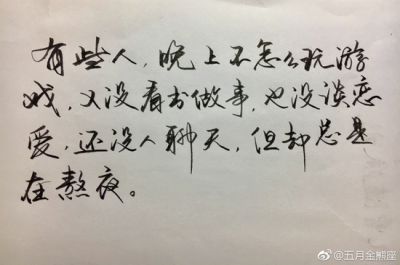 有些人，晚上不怎么玩游
戏，又没看书做事，也没谈恋
爱，还没人聊天，但却总是
在熬夜。
@五月金熊座